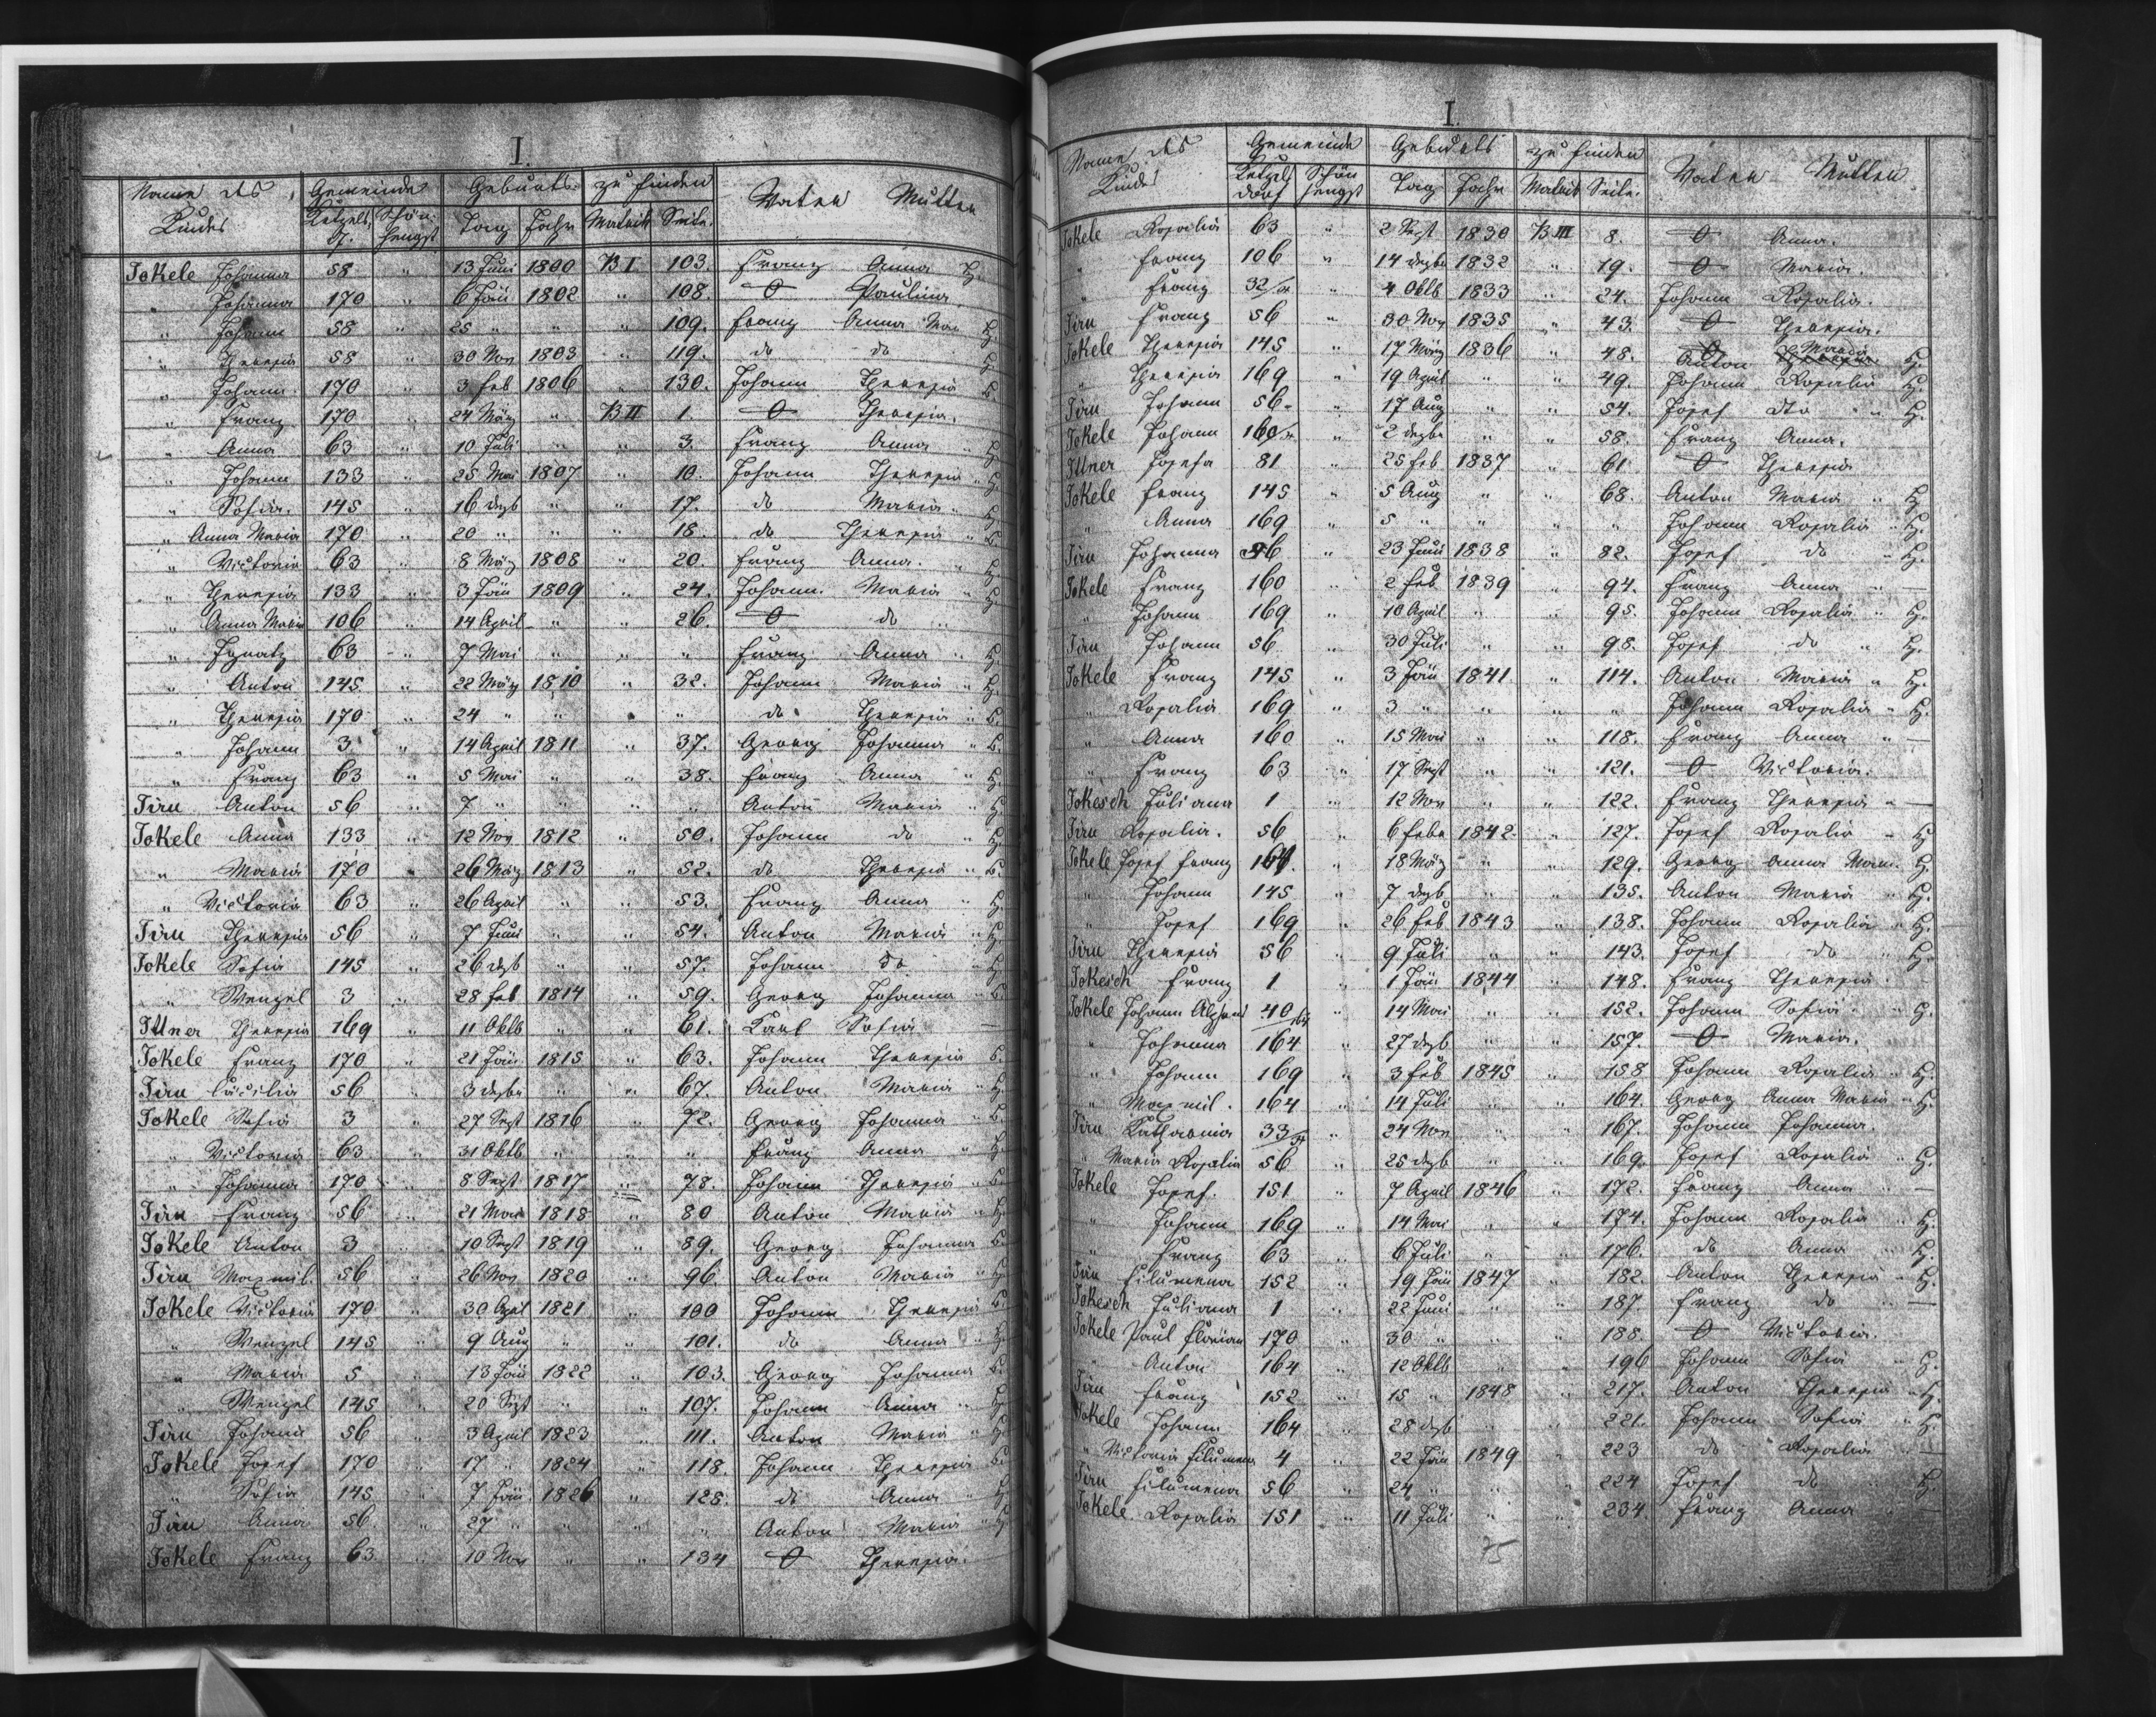 I.
Name des Kindes Gemeinde Geburts- zu finden Vater Mutter
Ketzelsdf. Schönhengst Tag Jahr Matrik Seite.
Jokele Johanna 58 " 13 Juni 1800 B I 103. Franz Anna
" Johanna 170 " 6 Jän 1802 " 108. O Paulina
" Johann 58 " 25 " " " 109. Franz Anna Mar
" Theresia 58 " 30 Nov 1803 " 119. do do
" Johann 170 " 3 Feb 1806 " 130. Johann Theresia
" Franz 170 " 24 März " B II 1. O Theresia.
" Anna 63 " 10 Juli " " 3. Franz Anna
" Johann 133 " 25 Mai 1807 " 10. Johann Theresia
" Sofia. 145 " 16 dezb " " 17. do Maria
" Anna Maria 170 " 20 " " " 18. do Theresia
" Victoria 63 " 8 März 1808 " 20. Franz Anna.
" Theresia 133 " 3 Jän 1809 " 24. Johann. Maria
" Anna Maria 106 " 14 April " " 26. O do
" Ignatz 63 " 7 Mai " " " Franz Anna
" Anton 145 " 22 März 1810 " 32. Johann Maria
" Theresia 170 " 24 " " " " do Theresia
" Johann 3 " 14 April 1811 " 37. Georg Johanna
" Franz 63 " 5 Mai " " 38. Franz Anna
Jiru Anton 56 " 7 " " " " Anton Maria
Jokele Anna 133 " 12 Nov 1812 " 50. Johann do
" Maria 170 " 26 März 1813 " 52. do Theresia
" Victoria 63 " 26 April " " 53. Franz Anna
Jiru Theresia 56 " 7 Juni " " 54. Anton Maria
Jokele Sofia 145 " 26 dezb " " 57. Johann do
" Wenzel 3 " 28 Feb 1814 " 59. Georg Johanna
Ittner Theresia 169 " 11 Oktb " " 61. Karl Sofia
Jokele Franz 170 " 21 Jän 1815 " 63. Johann Theresia
Jiru Cäcilia 56 " 3 dezbr " " 67. Anton Maria
Jokele Sofia 3 " 27 Sept 1816 " 72. Georg Johanna
" Victoria 63 " 31 Oktb " " " Franz Anna
" Johanna 170 " 8 Sept 1817 " 78. Johann Theresia
Jiru Franz 56 " 21 Mai 1818 " 80 Anton Maria
Jokele Anton 3 " 10 Sept 1819 " 89. Georg Johanna
Jiru Maxmil. 56 " 26 Nov 1820 " 96. Anton Maria
Jokele Victoria 170 " 30 April 1821 " 100 Johann Theresia
" Wenzel 145 " 9 Aug " " 101. do Anna
" Maria 5 " 13 Jän 1822 " 103. Georg Johanna
" Wenzel 145 " 20 Spt " " 107. Johann Anna
Jiru Johann 56 " 3 April 1823 " 111. Anton Maria
Jokele Josef 170 " 17 " 1824 " 118. Johann Theresia
" Sofia 145 " 7 Jän 1826 " 128. do Anna
Jiru Anna 56 " 27 " " " " Anton Maria
Jokele Franz 63 " 10 Nov " " 134 O Theresia.
I.
Name des Kindes Gemeinde Geburts zu finden Vater Mutter
Ketzelsdorf Schönhengst Tag Jahr Matrik Seite.
Jokele Rosalia 63 " 2 Sept 1830 B III 8. O Anna.
" Franz 106 " 14 dezbr 1832 " 19. O Maria.
" Franz 32/ " 4 Oktb 1833 " 24. Johann Rosalia.
Jiru Franz 56 " 30 Nov 1835 " 43. O Theresia.
Jokele Theresia 145 " 17 März 1836 " 48. Anton Maria
" Theresia 169 " 19 April " " 49. Johann Rosalia
Jiru Johann 56 " 17 Aug " " 54. Josef dto
Jokele Johann 160/ " 2 dezbr " " 58. Franz Anna.
Ittner Josefa 81 " 25 Feb 1837 " 61 O Theresia
Jokele Franz 145 " 5 Aug " " 68. Anton Maria
" Anna 169 " 5 " " " " Johann Rosalia
Jiru Johanna 56 " 23 Juni 1838 " 82. Josef do
Jokele Franz 160 " 2 Feb 1839 " 94. Franz Anna
" Johann 169 " 10 April " " 95. Johann Rosalia
Jiru Johann 56 " 30 Juli " " 98. Josef do
Jokele Franz 145 " 3 Jän 1841 " 114. Anton Maria
" Rosalia 169 " 3 " " " " Johann Rosalia
" Anna 160 " 15 Mai " " 118. Franz Anna
" Franz 63 " 17 Sept " " 121. O Victoria.
Jokesch Juliana 1 " 12 Nov " " 122. Franz Theresia
Jiru Rosalia. 56 " 6 Febr 1842 " 127. Josef Rosalia
Jokele Josef Franz 164. " 18 März " " 129. Georg Anna Maria
" Johann 145 " 7 dezb " " 135. Anton Maria
" Josef 169 " 26 Feb 1843 " 138. Johann Rosalia
Jiru Theresia 56 " 9 Juli " " 143. Josef do
Jokesch Franz 1 " 1 Jän 1844 " 148. Franz Theresia
Jokele Johann 40/164 " 14 Mai " " 152. Johann Sofia
" Johanna 164 " 27 dezb " " 157. O Maria.
" Johann 169 " 3 Feb 1845 " 158. Johann Rosalia
" Maxmil. 164 " 14 Juli " " 164. Georg Anna Maria
Jiru Katharina 33/ " 24 Nov " " 167. Johann Johanna.
" Maria Rosalia 56 " 25 dezb " " 169. Josef Rosalia
Jokele Josef. 151 " 7 April 1846 " 172. Franz Anna
" Johann 169 " 14 Mai " " 174. Johann Rosalia
" Franz 63 " 6 Juli " " 176. do Anna
Jiru Filumena 152 " 19 Jän 1847 " 182. Anton Theresia
Jokesch Juliana 1 " 22 Juni " " 187. Franz do
Jokele Paul Florian 170 " 30 " " " 188. O Victoria.
" Anton 164 " 12 Oktb " " 196 Johann Sofia
Jiru Franz 152 " 15 " 1848 " 217. Anton Theresia
Jokele Johann 164 " 28 dezb " " 221. Johann Sofia
" Victoria Filumena 4 " 22 Jän 1849 " 223 do Rosalia
Jiru Filumena 56 " 24 " " " 224 Josef do
Jokele Rosalia 151 " 11 Juli " " 234 Franz Anna
75